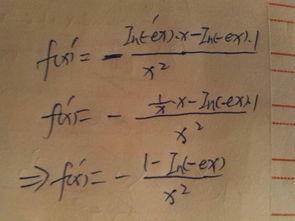 f(x)′ = - (In(-ex)′·x - In(-ex)·1) / x²
f(x)′ = - (1/x·x - In(-ex)·1) / x²
⇒ f(x)′ = - (1 - In(-ex)) / x²